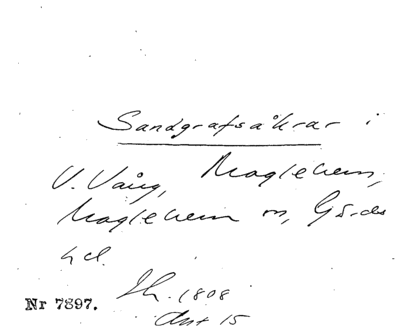 Sandgrafsåkrar i
V. Vång, Maglehem,
Maglehem sn, Gärds
hd.
Nr 7897. Sk. 1808
Akt 15